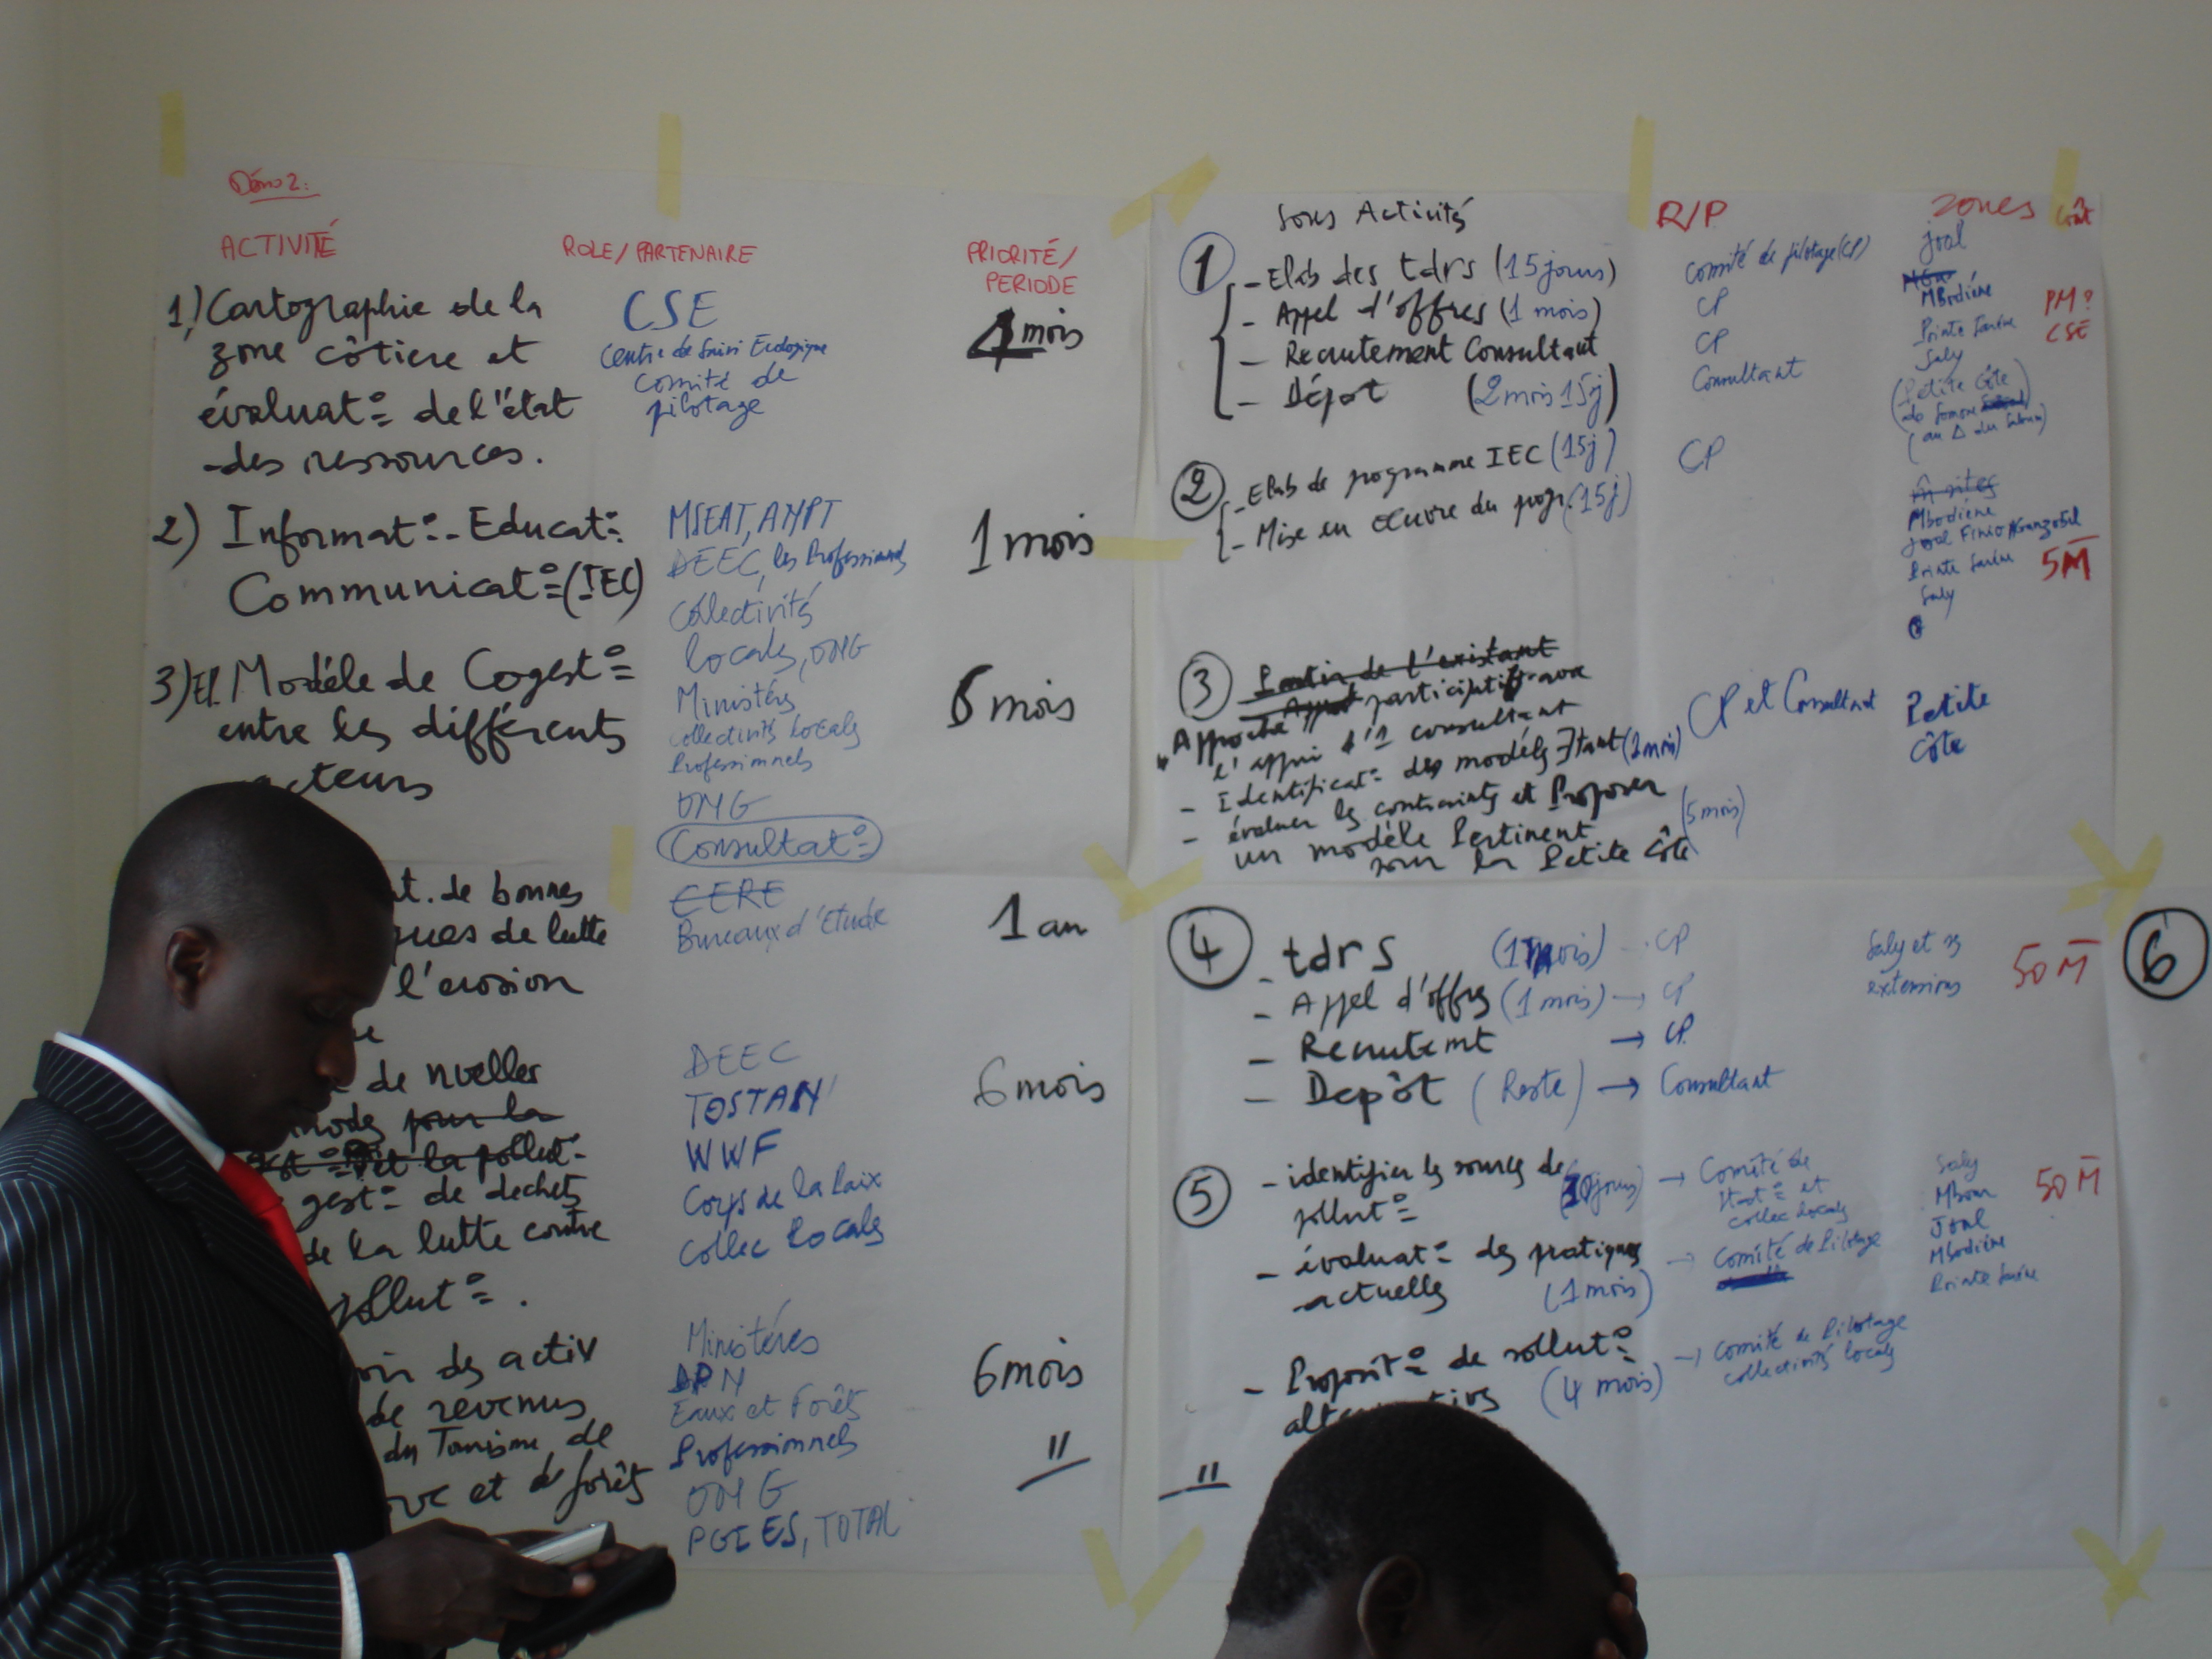 Démo 2:
ACTIVITÉ
ROLE/PARTENAIRE
PRIORITÉ/
PERIODE
1) Cartographie de la
zone côtiere et
évaluat° de l'état
des ressources.
CSE
Centre de Suivi Ecologique
Comité de
pilotage
4 mois
2) Informat° - Educat°
Communicat° (IEC)
MSEAT, AMPT
DEEC, les Professionnels
Collectivités
locales, ONG
1 mois
3) El. Modéle de Cogest°
entre les différents
acteurs
Ministéres
collectivités locales
Professionnels
ONG
Consultat°
6 mois
t. de bonnes
ques de lutte
l'erosion
CERE
Bureaux d'Etude
1 an
de nvelles
pour la
la pollut°
gest° de dechets
de la lutte contre
pollut°.
DEEC
TOSTAN
WWF
Corps de la Paix
Collec Locales
6 mois
des activ
de revenus
du Tourisme, de
et de forêts
Ministéres
DPN
Eaux et Forêts
Professionnels
ONG
PGIES, TOTAL
6 mois
"
Sous Activités
R/P
Zones
Coût
1
- Elab des tdrs (15 jours)
- Appel d'offres (1 mois)
- Recrutement Consultant
- Dépot (2 mois 15j)
Comité de pilotage (CP)
CP
CP
Consultant
Joal
MBodiéne
Pointe Saréne
Saly
(Petite Côte)
(au Δ du Saloum)
PM?
CSE
2
- Elab de programme IEC (15j)
- Mise en œuvre du progr. (15j)
CP
sites
Mbodiene
Joal Finio
Pointe Saréne
Saly
5M
3
Partir de l'existant
Approche participative
l'appui d'1 consultant
- Identificat° des modéles ∃tant (1 mois)
- évaluer les contraintes et Proposer
un modèle Pertinent
pour la Petite Côte
(5 mois)
CP et Consultant
Petite
Côte
4
- tdrs (1 mois) - CP
- Appel d'offres (1 mois) → CP
- Recrutemt → CP
- Depôt (Reste) → Consultant
Saly et ses
extensions
50 M
5
- identifier les sources de
pollut°
jours) → Comité de
et
collec locales
- évaluat° des pratiques
actuelles (1 mois)
→ Comité de Pilotage
- Proposit° de sollut°
(4 mois)
→ Comité de Pilotage
collectivités locales
Saly
Mbour
Joal
Mbodiéne
Pointe Saréne
50 M
"
6